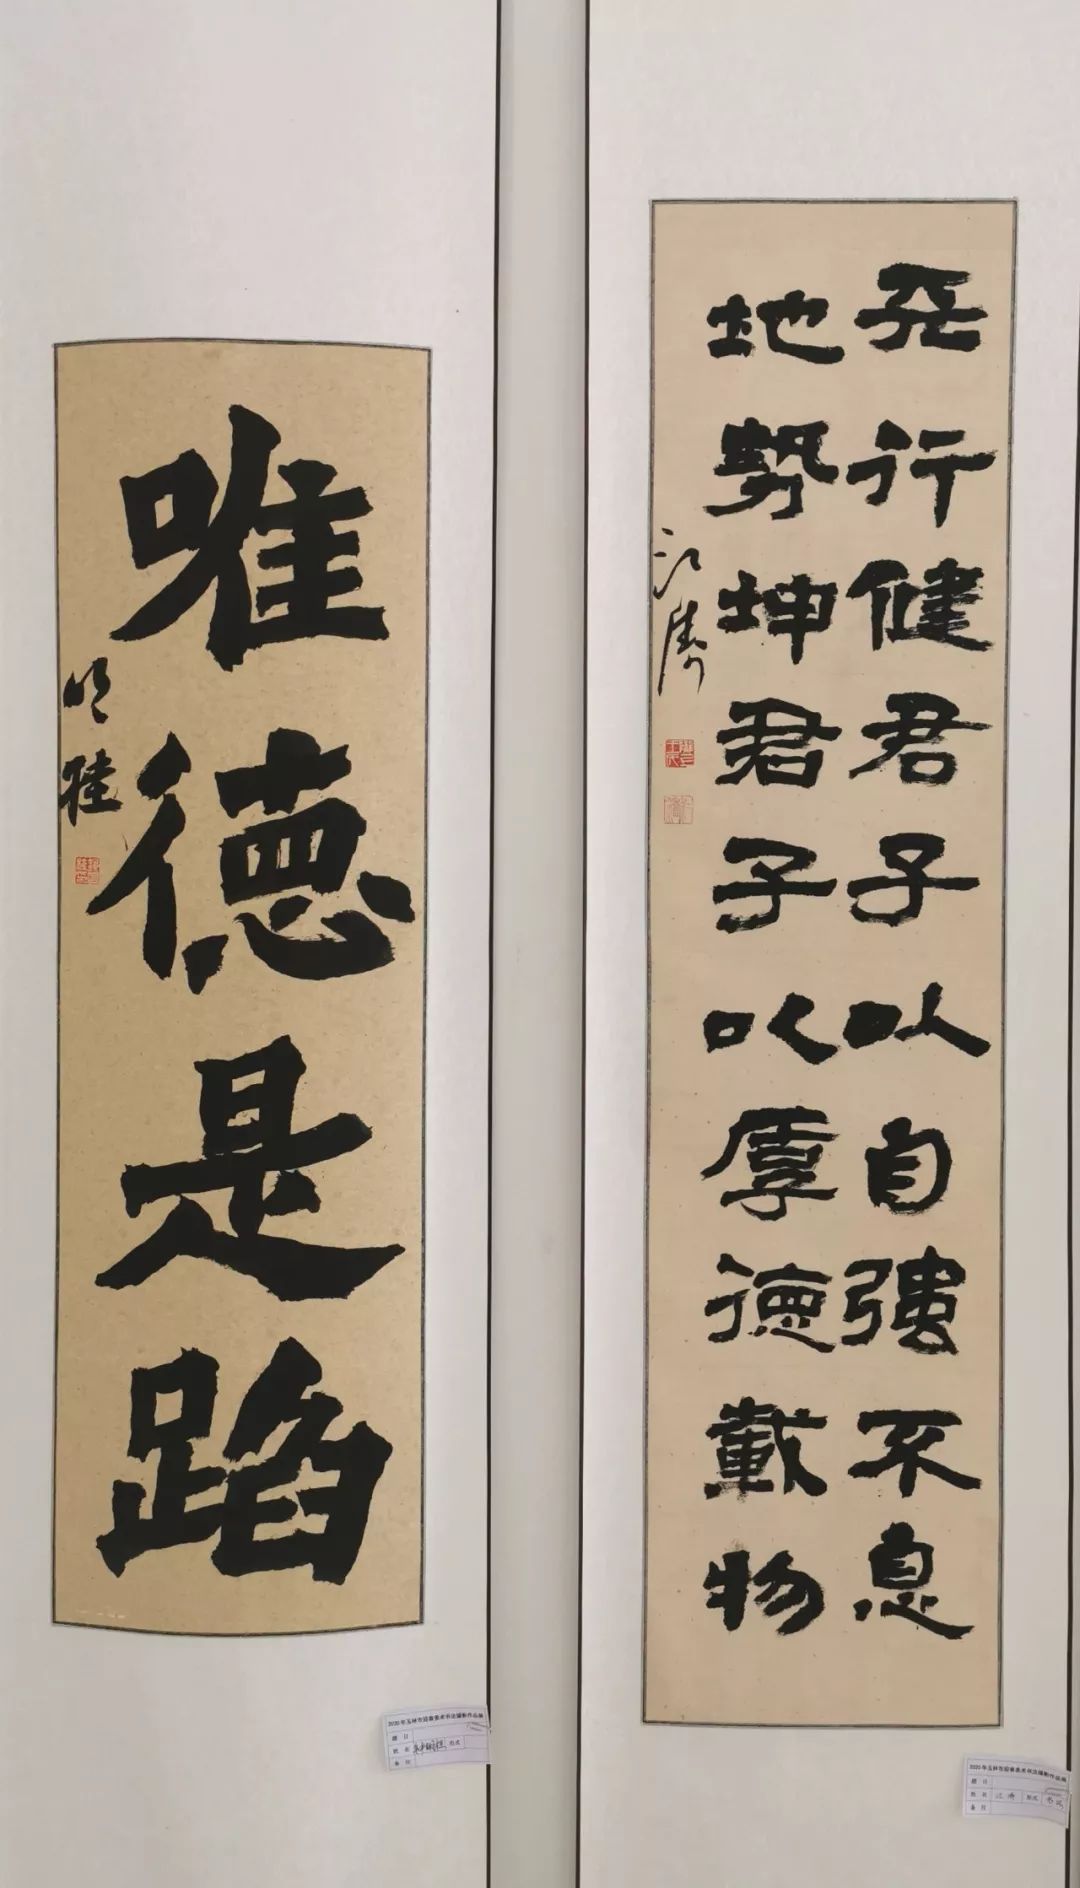 唯德是蹈
天行健君子以自强不息
地势坤君子以厚德载物
江涛
2020年玉林市迎春美术书法摄影作品展
题目
姓名
形式
备注
2020年玉林市迎春美术书法摄影作品展
题目
姓名 江涛 形式 书法
备注